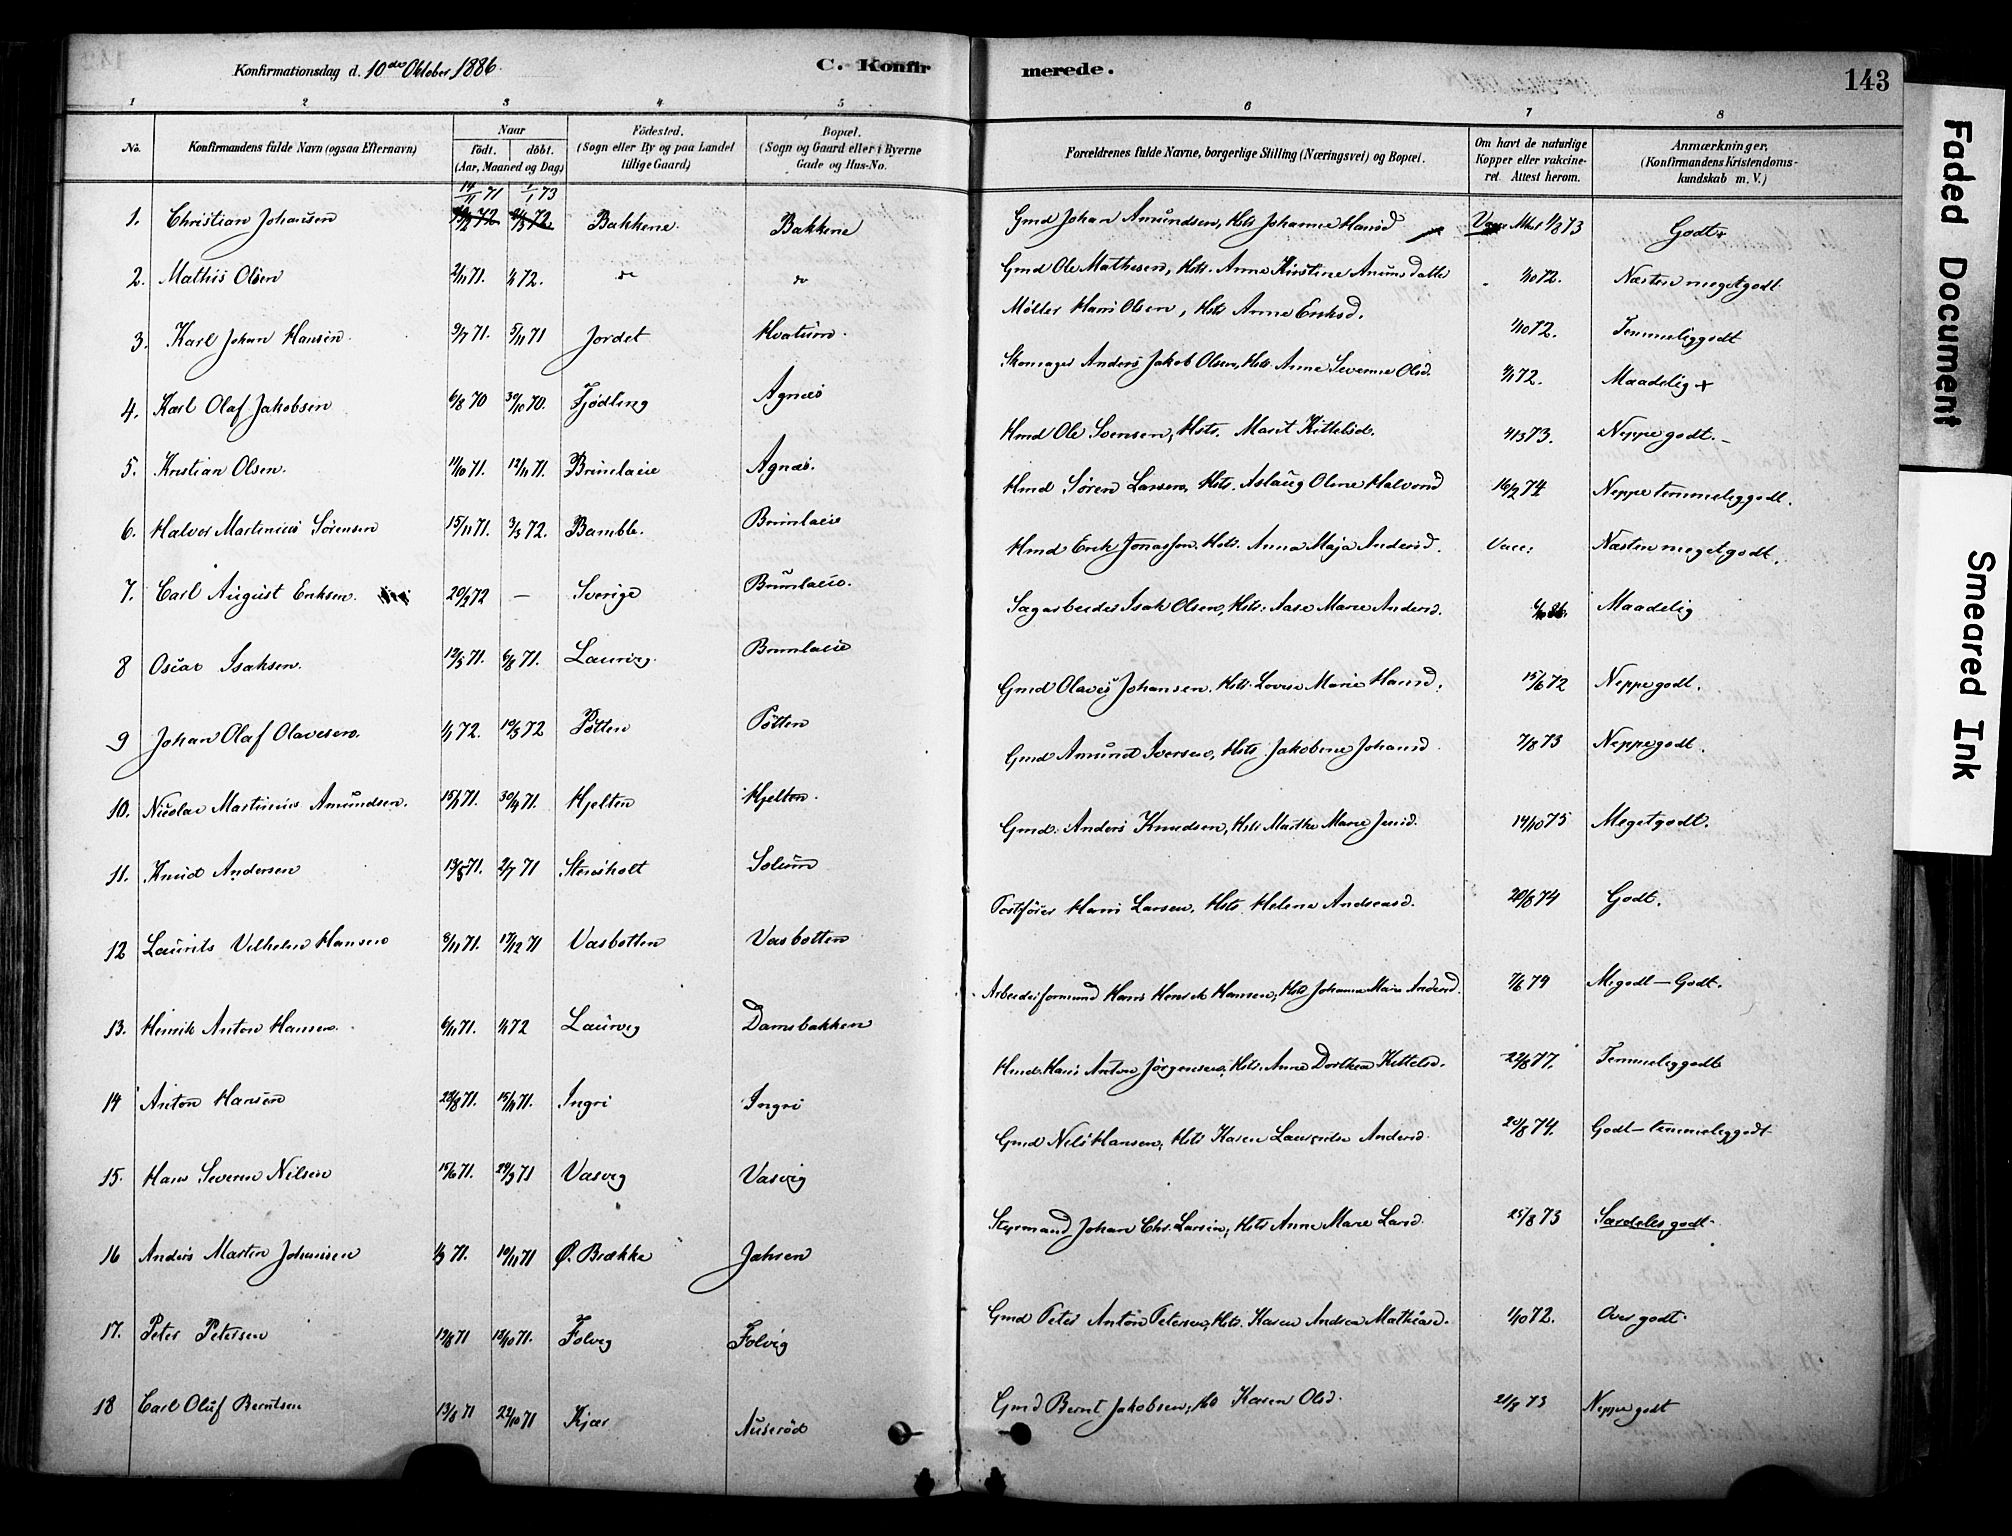 Konfirmationsdag d. 10de Oktober 1886. C. Konfirmerede. 143
1 2 3 4 5 6 7 8
No. Konfirmandens fulde Navn (ogsaa Efternavn) Naar födt. döbt. (Aar, Maaned og Dag) Födested. (Sogn eller By og paa Landet tillige Gaard) Bopæl. (Sogn og Gaard eller i Byerne Gade og Hus-No. Forældrenes fulde Navne, borgerlige Stilling (Næringsvei) og Bopæl. Om havt de naturlige Kopper eller vakcineret. Attest herom. Anmærkninger. (Konfirmandens Kristendomskundskab m. V.)
14/11 71 1/1 73
1. Christian Johansen Bakkene Bakkene Gmd Johan Amundsen, Hst. Johanne Hansd Attest 1/8 73 Godt
2. Mathis Olsen 2/11 71. 1/1 72. do do Gmd Ole Mathisen, Hst. Anne Kirstine Amundsdatter 1/10 72. Næsten meget godt
3. Karl Johan Hansen 9/7 71. 5/11 71 Jordet Kvatum Møller Hans Olsen, Hst Anne Eriksd. 1/10 72. Temmeliggodt
4. Karl Olaf Jakobsen 6/8 70 30/10 70. Fjödling Agnæs Skomager Anders Jakob Olsen, Hst. Anne Severine Olsd. 72. Maadelig +
5. Kristian Olsen. 11/10 71. 12/11 71. Brunlaeie Agnæs. Hmd Ole Svensen, Hst. Marit Kittelsd. 4/3 73. Neppe godt.
6. Halvor Martinius Sörensen 15/11 71. 3/3 72. Bamble. Brunlaeie Hmd Sören Larsen, Hst. Aslaug Oline Halvorsd 16/2 74 Neppe temmeliggodt.
7. Carl August Eriksen. 20/3 72 — Sverige Brunlaeie. Hmd Erik Jonassen. Hst. Anna Maja Andersd. Vacc: Næsten meget godt.
8 Oscar Isaksen. 12/3 71. 6/8 71. Laurvig. Brunlaeie Sagarbeider Isak Olsen, Hst. Aase Marie Andersd. 86. Maadelig
9 Johan Olaf Olavesen. 1/1 72. 10/3 72 Pötten Pötten Gmd Olaves Johansen. Hst. Lovise Marie Hansd. 15/6 72 Neppe godt.
10. Nicolai Martinius Amundsen. 15/7 71. 30/9 71. Hjelten Hjelten. Gmd Amund Iversen, Hst. Jakobine Johansd 7/8 73 Neppe godt.
11. Knud Andersen 13/5 71. 2/7 71 Stensholt Solum Gmd. Anders Knudsen, Hst Marthe Marie Jensd. 14/10 75 Meget godt.
12 Laurits Vilhelm Hansen 8/11 71. 17/12 71 Vasbotten Vasbotten Postförer Hans Larsen, Hst. Helene Andreasd. 20/8 74 Godt.
13. Henrik Anton Hansen. 6/11 71. 1/1 72 Laurvig Damsbakken Arbeidsformand Hans Henrik Hansen, Hst Johanne Marie Andersd. 7/6 79 Megodt — Godt.
14 Anton Hansen 28/8 71. 15/11 71. Ingri Ingri Hmd. Hans Anton Jörgensen, Hst. Anne Dorthea Kittelsd. 22/8 77. Temmeliggodt
15. Hans Severin Nilsen 15/6 71. 24/9 71 Vasvig Vasvig Gmd Nils Hansen, Hst Karen Laurentse Andersd. 20/8 74. Godt — temmeliggodt
16 Anders Martin Johansen 1/9 71. 19/11 71 Ø. Brække Jahren Styrmand Johan Chr. Larsen, Hst. Anne Marie Larsd. 25/8 73 Særdeles godt.
17. Peter Petersen 19/8 71 15/10 71. Folvig Folvig Gmd Peter Anton Petersen, Hst. Karen Andrea Mathiasd. 1/10 72. Over godt.
18 Carl Oluf Berntsen 13/8 71 22/10 71 Kjær Auseröd Gmd Bernt Jakobsen, Hst Karen Olsd. 21/8 73 Neppe godt
Faded Document
Smeared Ink